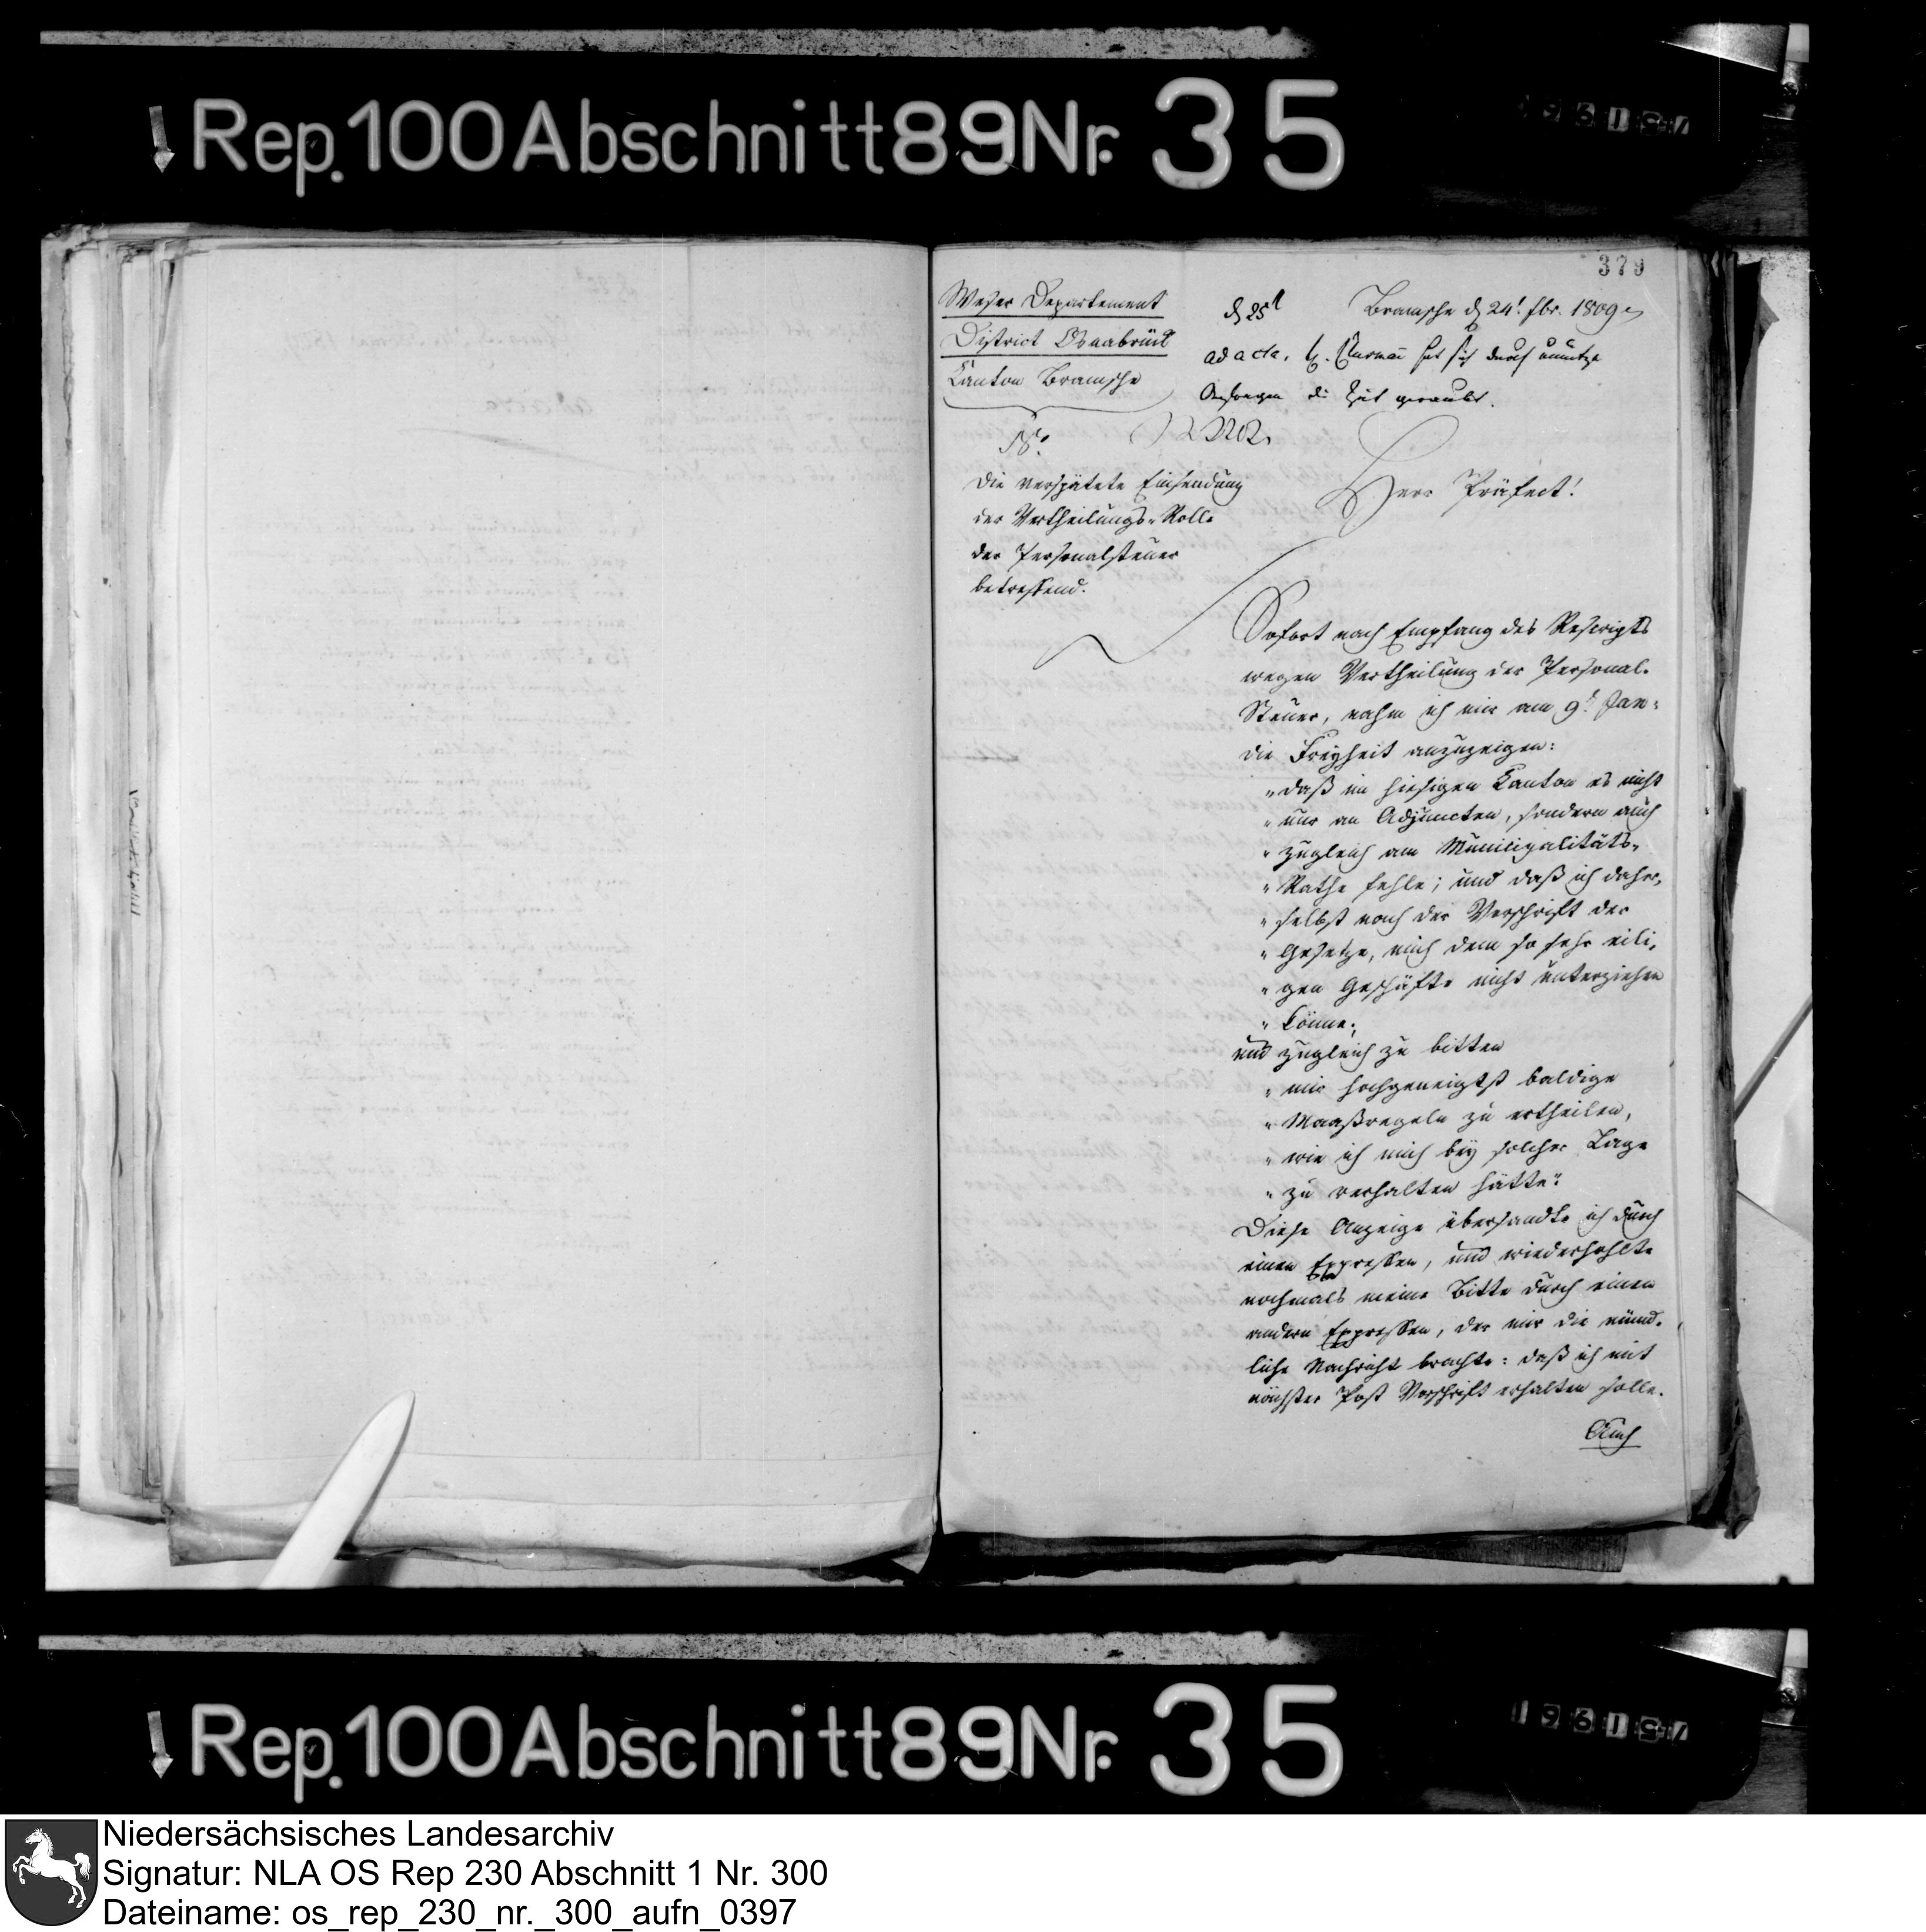 Rep. 100 Abschnitt 89 Nr. 35
379
Weser Departement
District Osnabrück
Canton Bramsche
Bramsche d 24t. Fbr. 1809
d 25t
ad acta. H. hat sich durch unnütze
Anfragen die Zeit geraubt.
Die verspätete Einsendung
der Vertheilungs-Rolle
der Personalsteuer
betreffend.
Herr Präfect!
Sofort nach Empfang des Rescripts
wegen Vertheilung der Personal-
Steuer, nahm ich mir am 9t Jan:
die Freyheit anzuzeigen:
"daß im hiesigen Canton es nicht
"nur an Adjuncten, sondern auch
"zugleich am Municipalitäts-
"Rathe fehle; und daß ich daher,
"selbst nach der Vorschrift der
"Gesetze, mich dem so sehr eili-
"gen Geschäfte nicht unterziehen
"könne;
und zugleich zu bitten
"mir hochgeneigtst baldige
"Maaßregeln zu ertheilen,
"wie ich mich bey solcher Lage
"zu verhalten hätte".
Diese Anzeige übersandte ich durch
einen Expressen, und wiederhohlte
nochmals meine Bitte durch einen
andern Expressen, der mir die münd-
liche Nachricht brachte: daß ich mit
nächster Post Vorschrift erhalten solle.
Auch
Rep. 100 Abschnitt 89 Nr. 35
Niedersächsisches Landesarchiv
Signatur: NLA OS Rep 230 Abschnitt 1 Nr. 300
Dateiname: os_rep_230_nr._300_aufn_0397